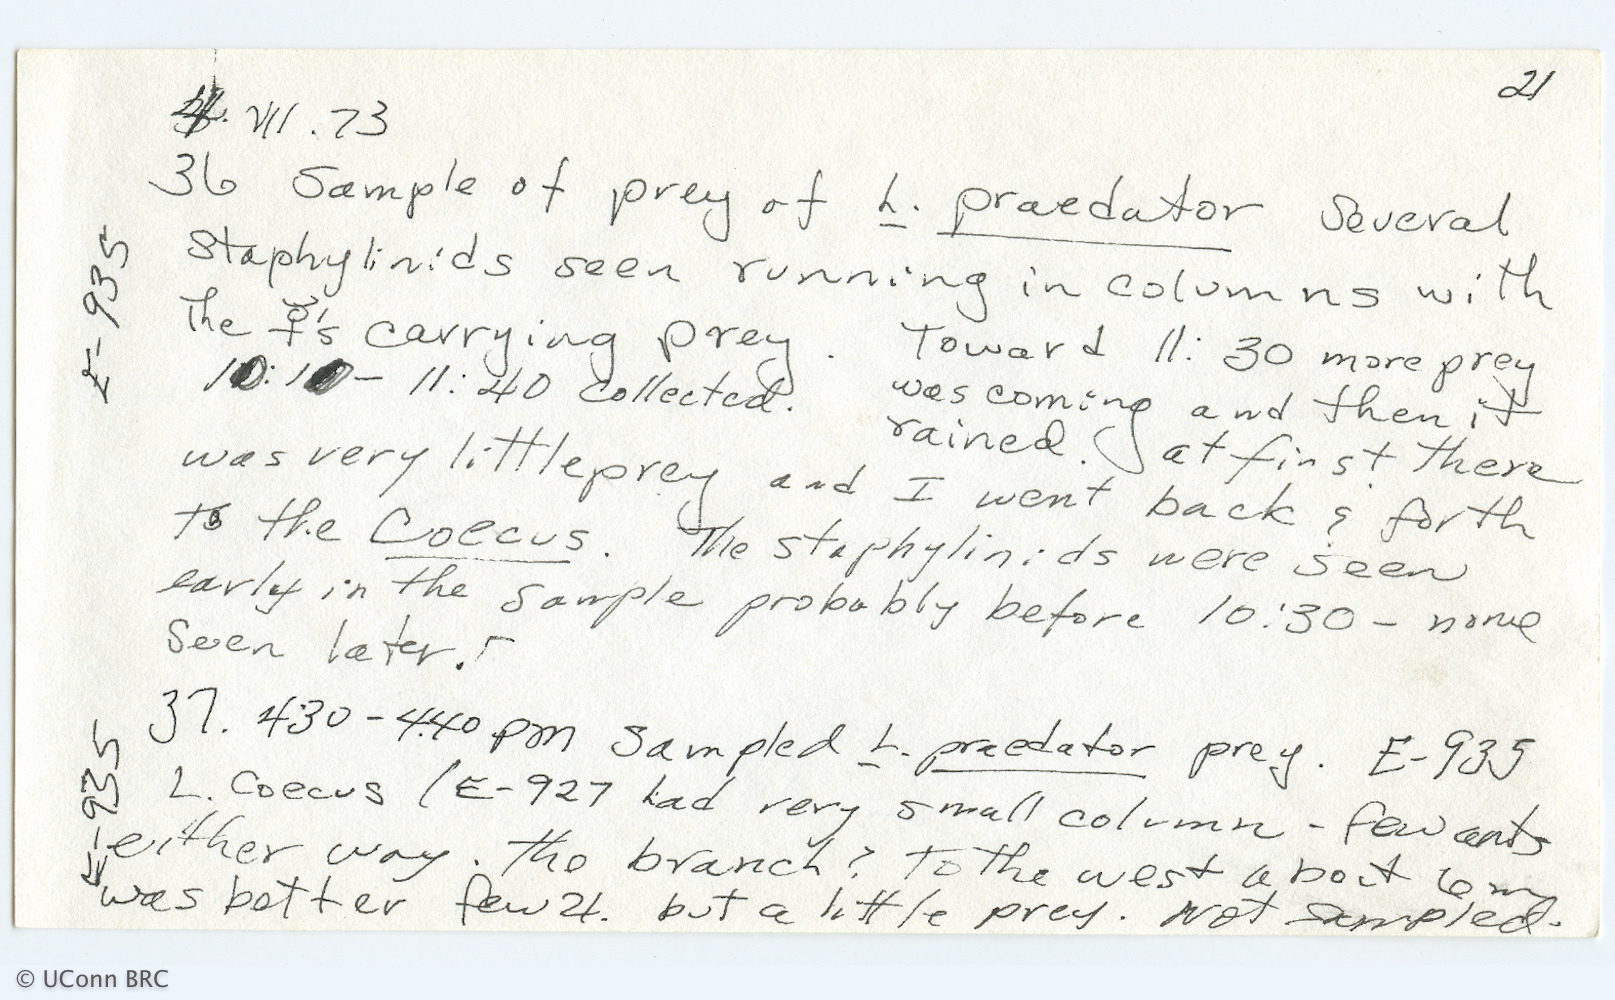 21
4. VII. 73
36 Sample of prey of L. praedator Several
staphylinids seen running in columns with
the ☿'s carrying prey. Toward 11:30 more prey
10:10 - 11:40 collected. was coming and then it
rained. at first there
was very little prey and I went back & forth
to the Coecus. The staphylinids were seen
early in the sample probably before 10:30 - none
seen later.
37. 430-440 pm Sampled L. praedator prey. E-935
L. Coecus /E-927 had very small column - few ants
either way. The branch? To the west about 6 m
was better few but a little prey. Not sampled.
E-935
E-935
© UConn BRC